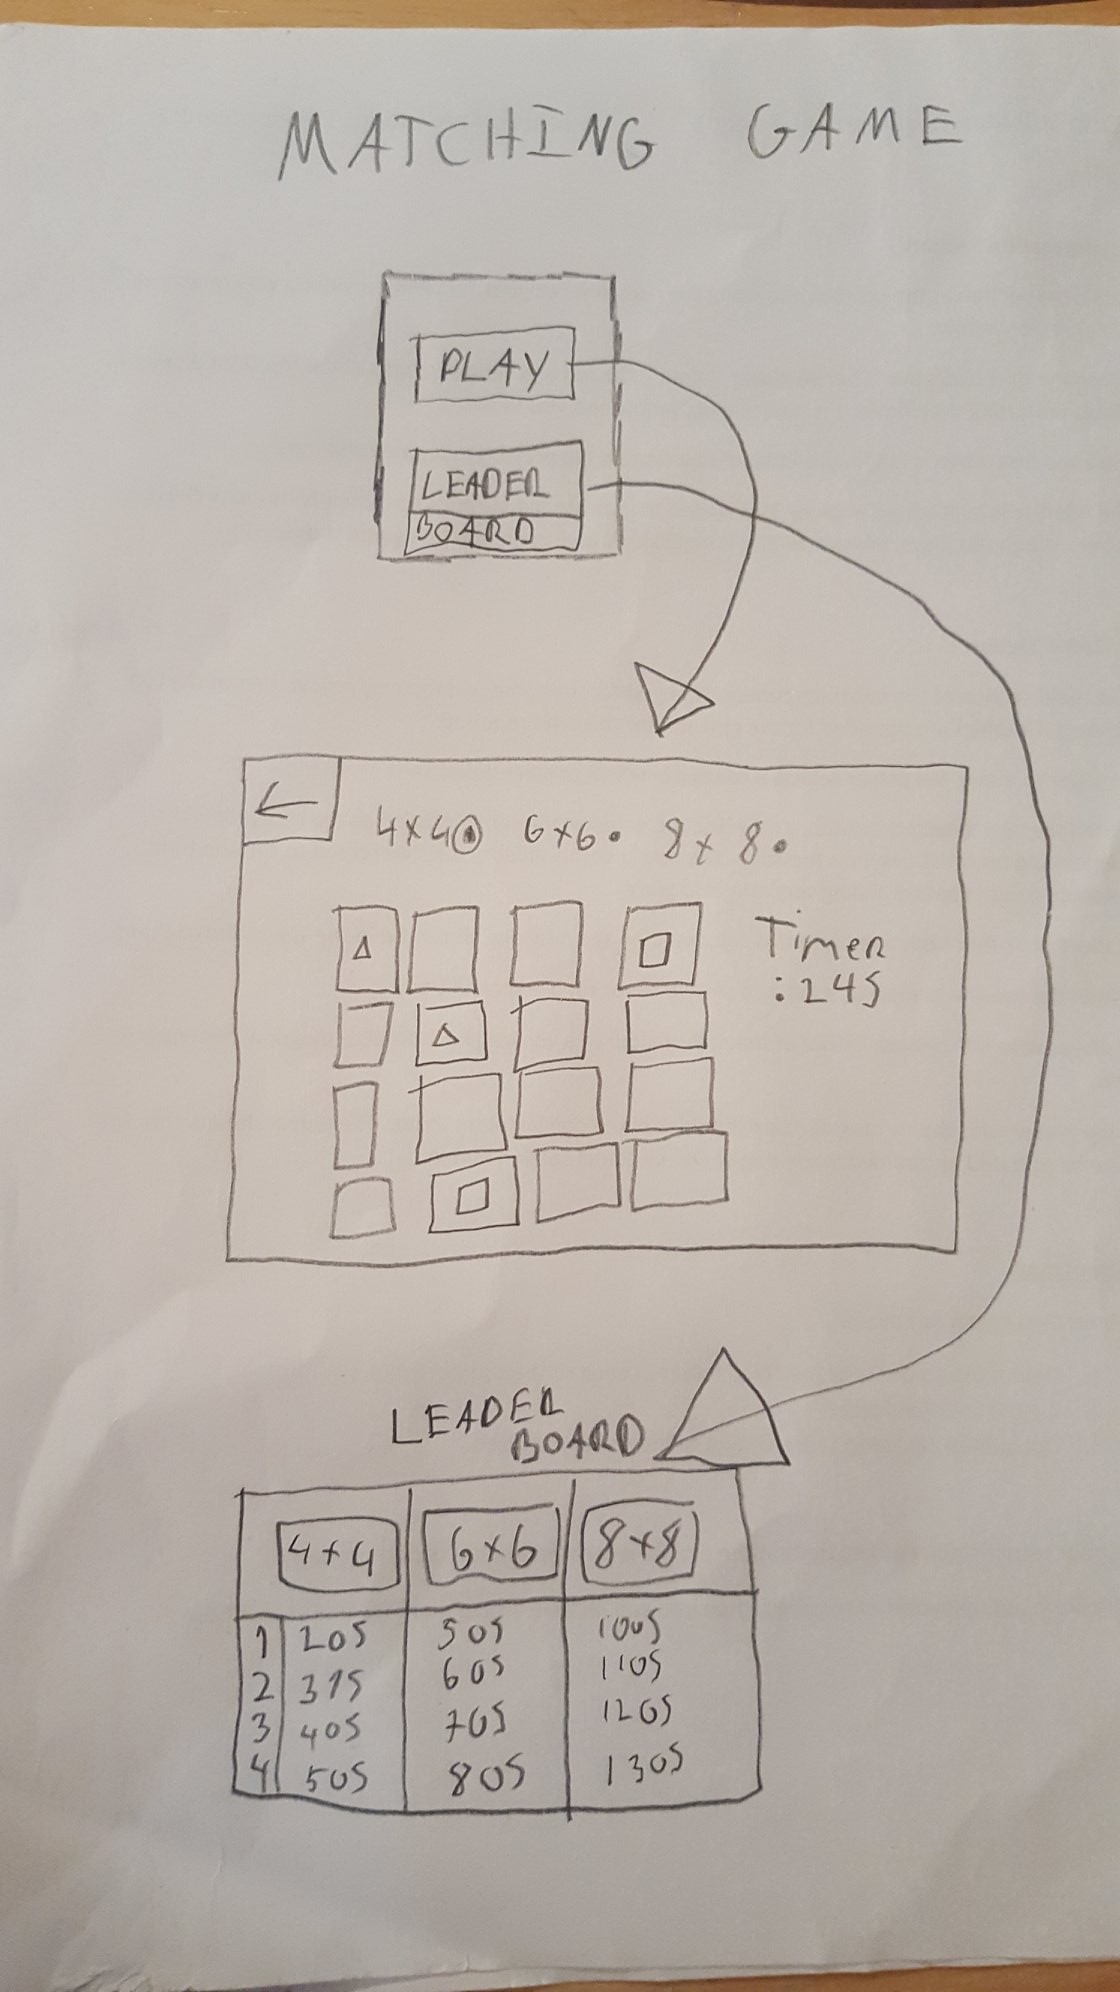 MATCHING GAME
PLAY
LEADER
BOARD
4x4 6x6 8x8
Timer
:24S
LEADER
BOARD
4x4 6x6 8x8
1 20S 50S 100S
2 31S 60S 110S
3 40S 70S 120S
4 50S 80S 130S